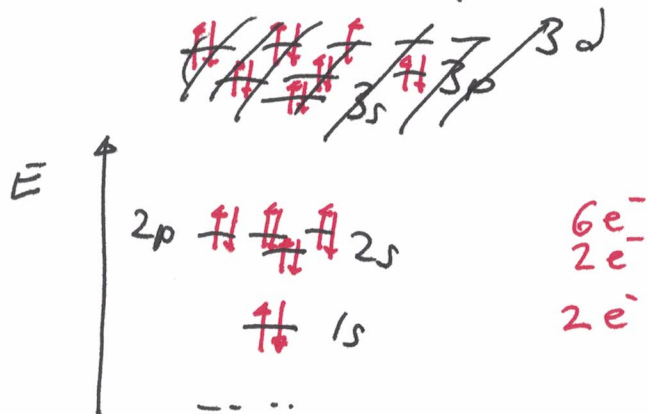 3d
3s 3p
E
2p 2s 6e⁻
2e⁻
1s 2e⁻